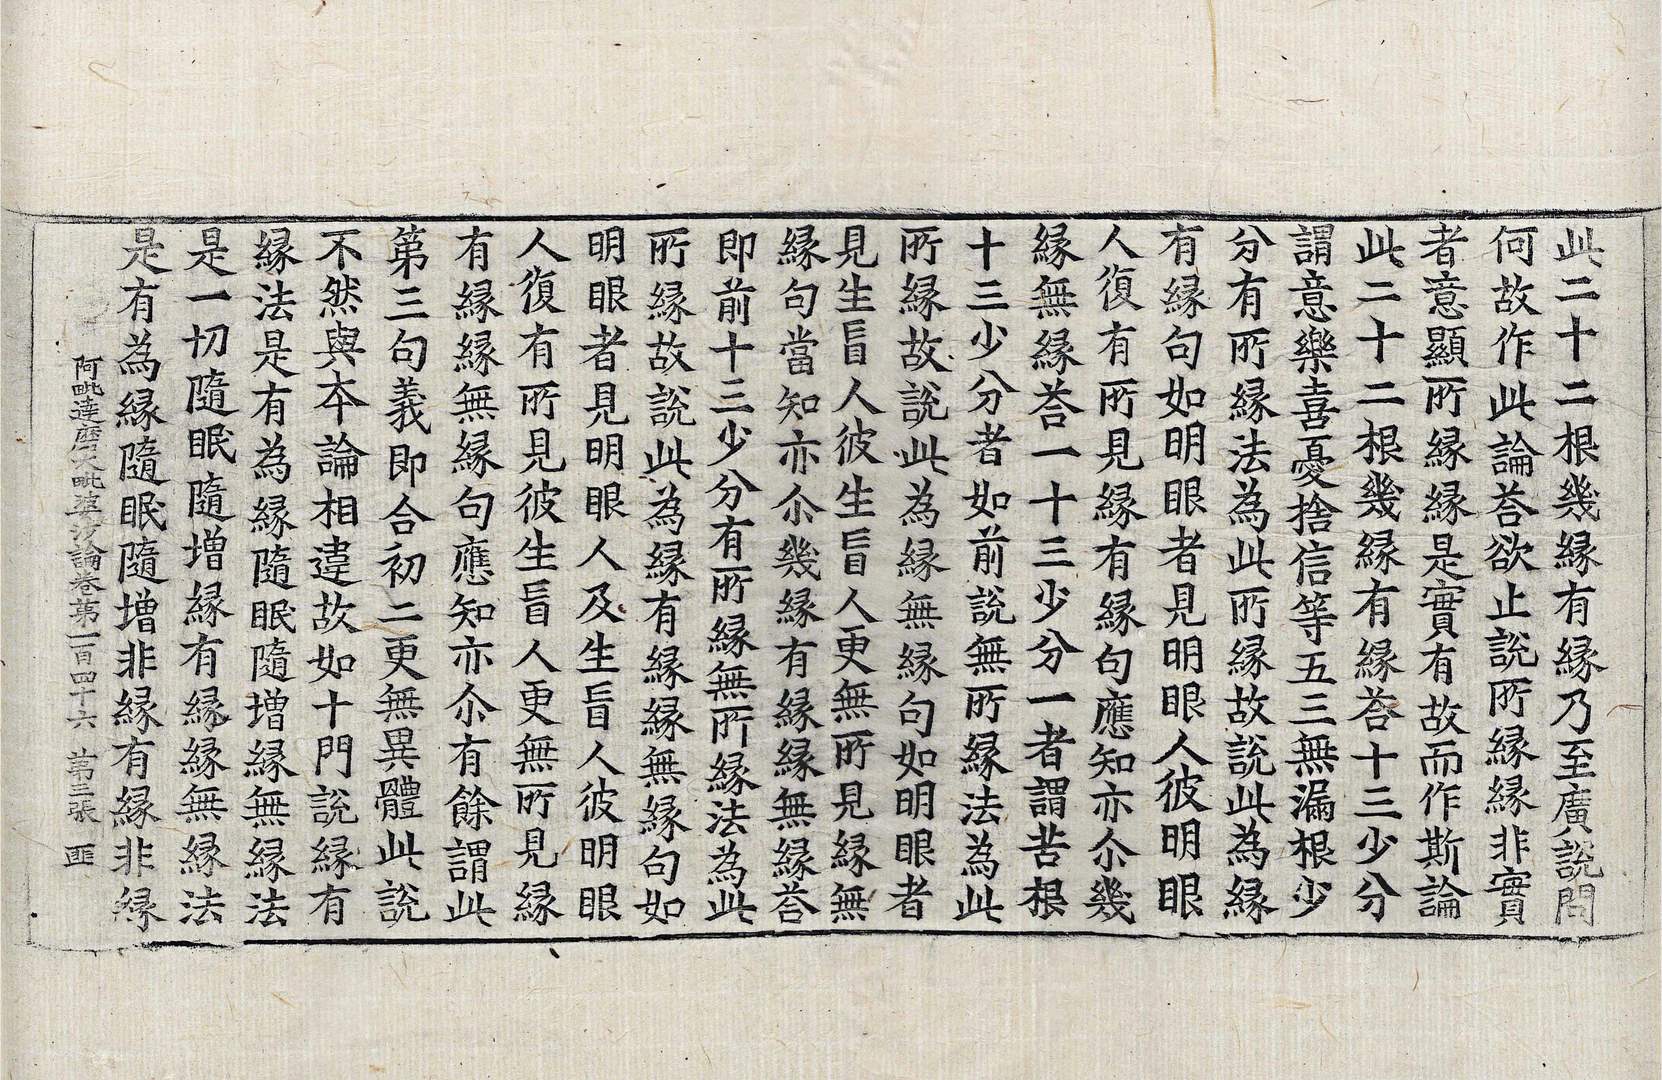 此二十二根幾縁有縁乃至廣說問
何故作此論荅欲止說所縁縁非實
者意顯所縁縁是實有故而作斯論
此二十二根幾縁有縁荅十三少分
謂意樂喜憂捨信等五三無漏根少
分有所縁法為此所縁故說此為縁
有縁句如明眼者見明眼人彼明眼
人復有所見縁有縁句應知亦尒幾
縁無縁荅一十三少分一者謂苦根
十三少分者如前說無所縁法為此
所縁故說此為縁無縁句如明眼者
見生盲人彼生盲人更無所見縁無
縁句當知亦尒幾縁有縁縁無縁荅
即前十三少分有所縁無所縁法為此
所縁故說此為縁有縁縁無縁句如
明眼者見明眼人及生盲人彼明眼
人復有所見彼生盲人更無所見縁
有縁縁無縁句應知亦尒有餘謂此
第三句義即合初二更無異體此說
不然與本論相違故如十門說縁有
縁法是有為縁隨眠隨增縁無縁法
是一切隨眠隨增縁有縁縁無縁法
是有為縁隨眠隨增非縁有縁非縁
阿毗達磨大毗婆沙論卷第一百四十六 第三張 匪